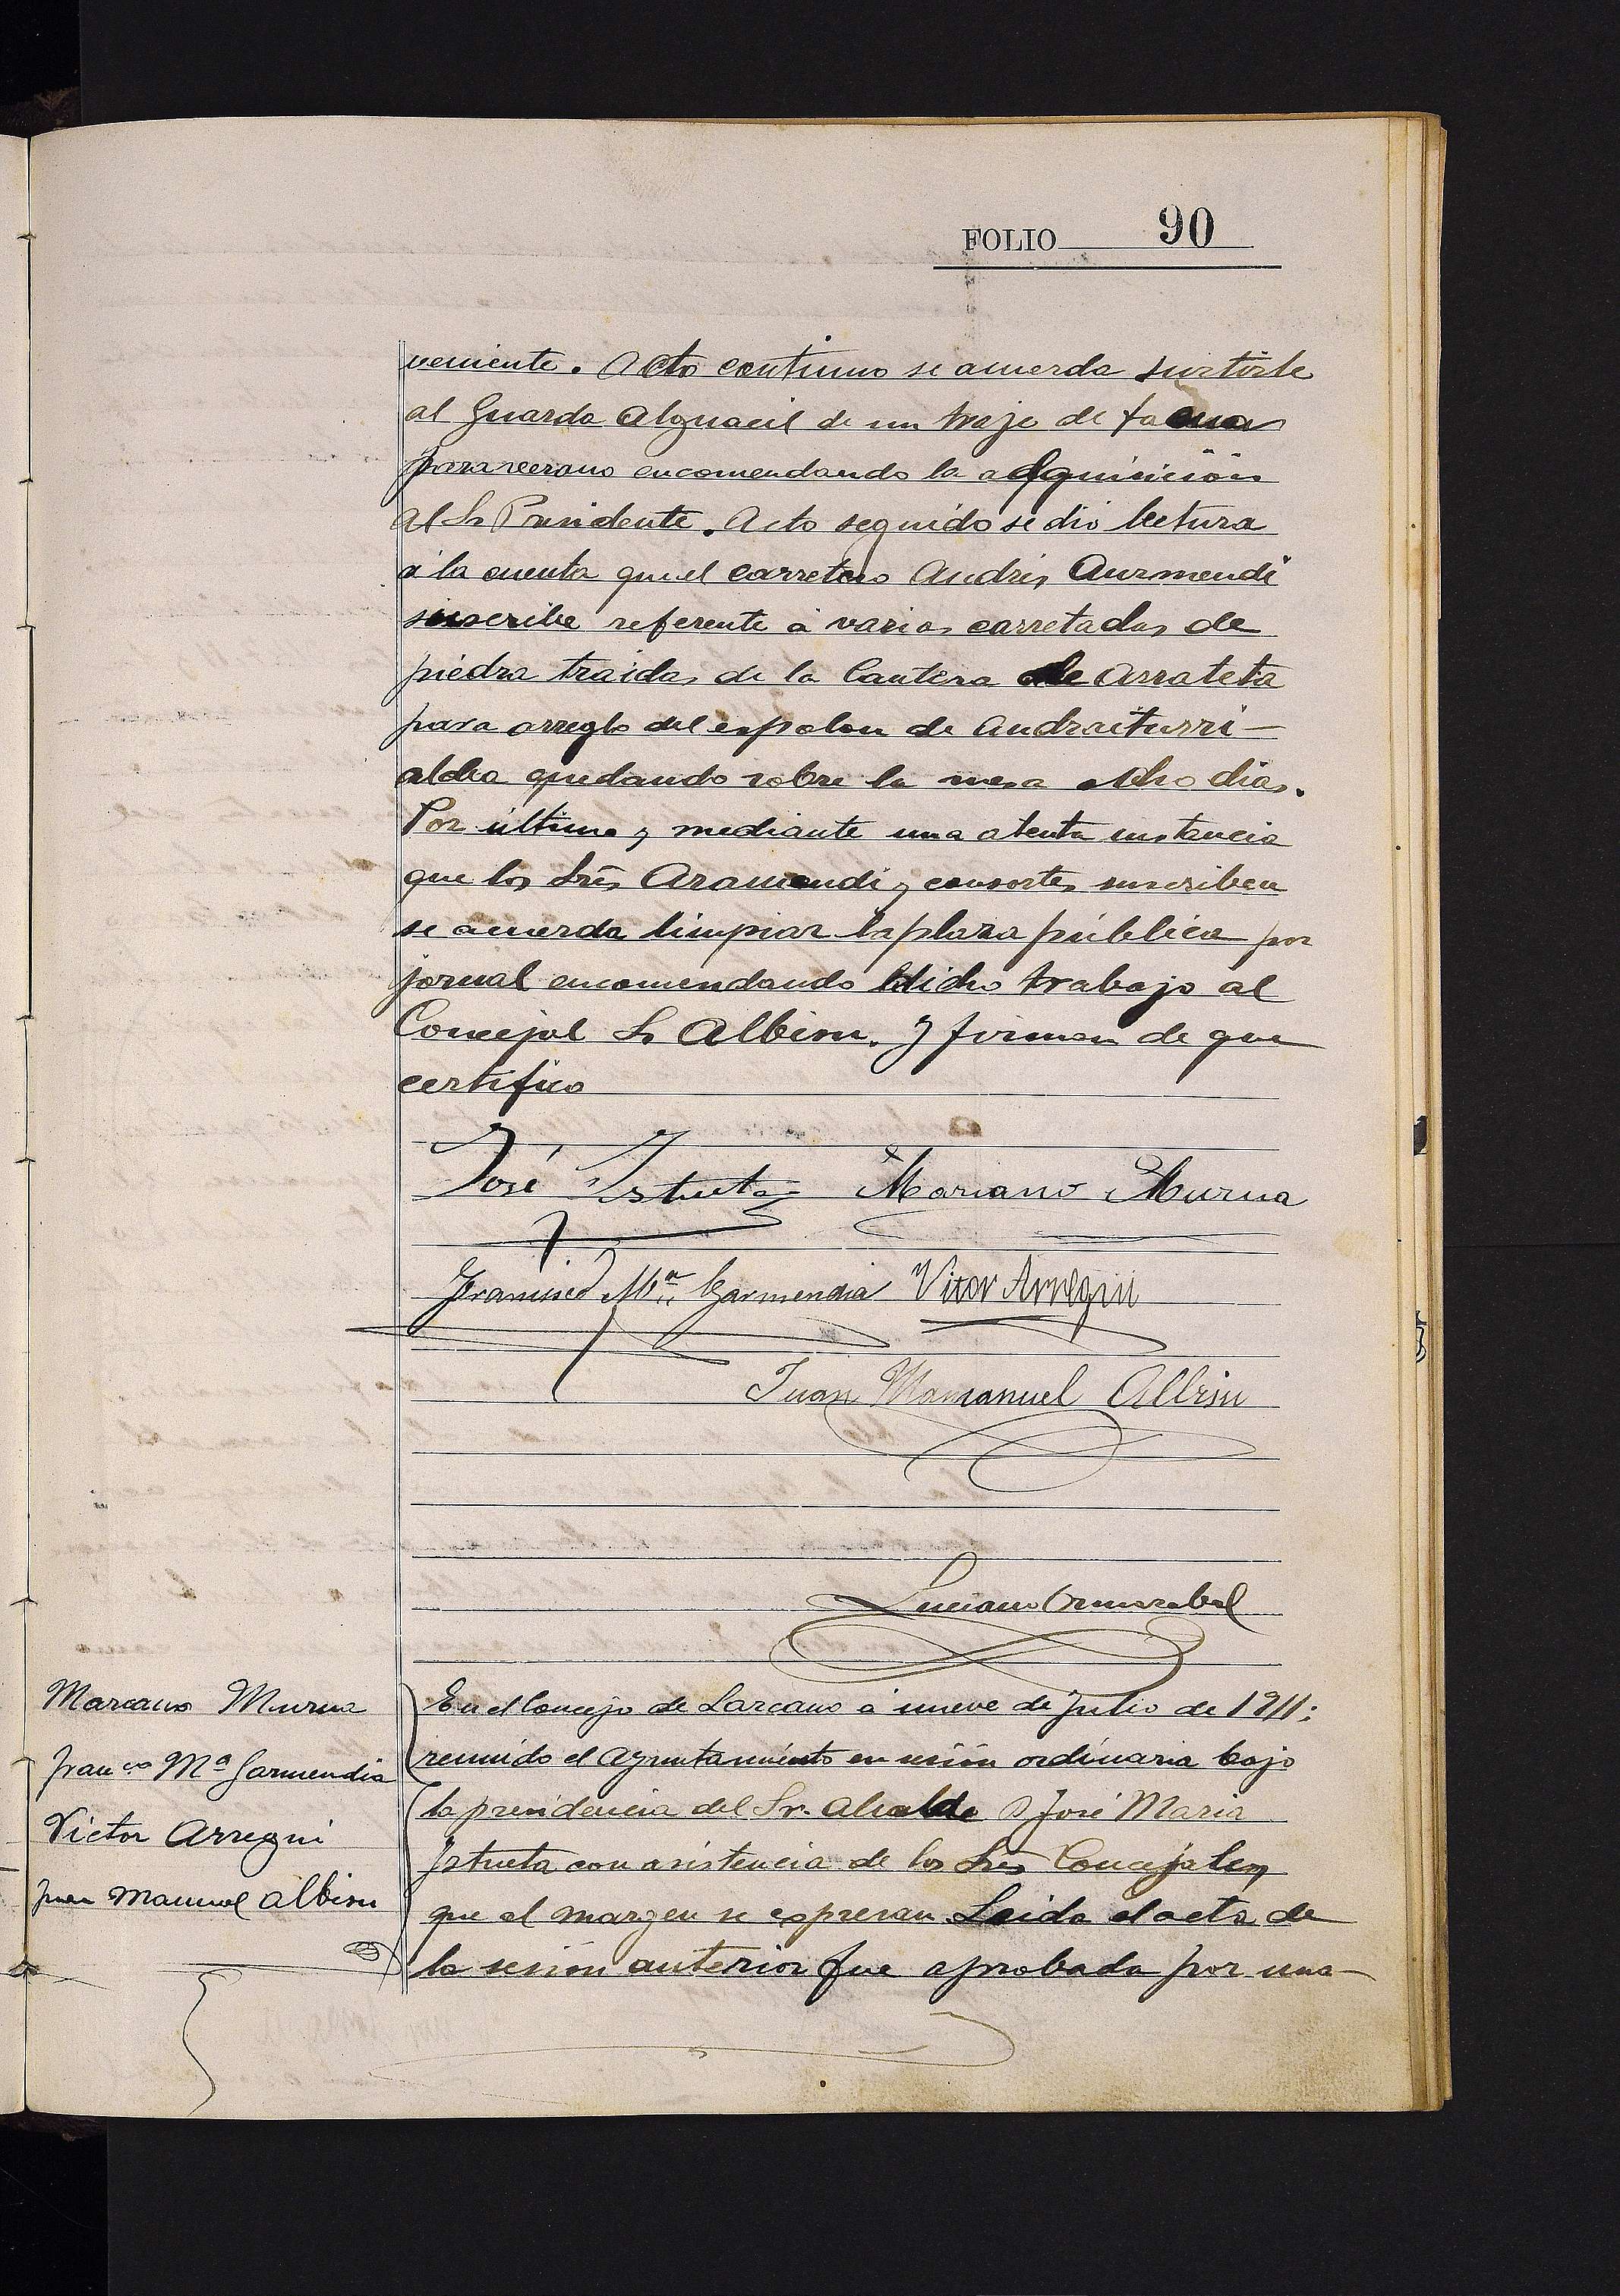 FOLIO 90
veniente. Acto continuo se acuerda surtirle
al Guarda Alguacil de un traje de faena
para verano encomendando la adquisición
al Sr Presidente. Acto seguido se dió lectura
á la cuenta que el carretero Andrés Aurmendi
suscribe referente á varias carretadas de
piedra traidas de la Cantera de Arrateta
para arreglo del espolon de Andraiturri-
aldea quedando sobre la mesa ocho dias.
Por último y mediante una atenta instancia
que los Srés Aramendi y consortes suscriben
se acuerda limpiar la plaza pública por
jornal encomendando dicho trabajo al
Concejal Sr Albisu. Y firman de que
certifico
José Istueta Mariano Murua
Francisco Mª Garmendia Vitor Arregui
Juan Mamanuel Albisu
Luciano Ormazabal
Marcano Murua
Franco Mª Garmendia
Victor Arregui
Juan Manuel Albisu
En el Concejo de Lazcano á nueve de Julio de 1911;
reunido el Ayuntamiento en sesión ordinaria bajo
la presidencia del Sr. Alcalde D José Maria
Istueta con asistencia de los Srés Concejales
que al margen se expresan. Leida el acta de
la sesión anterior fue aprobada por una-